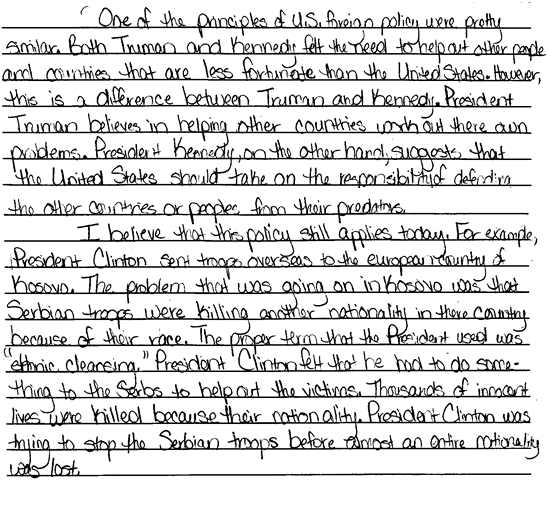 One of the principles of U.S. foreign policy were pretty
similar. Both Truman and Kennedy felt the need to help out other people
and countries that are less fortunate than the United States. However,
this is a difference between Truman and Kennedy. President
Truman believes in helping other countries work out there own
problems. President Kennedy, on the other hand, suggests that
the United States should take on the responsibility of defending
the other countries or peoples from their predators.
I believe that this policy still applies today. For example,
President Clinton sent troops overseas to the european country of
Kosovo. The problem that was going on in Kosovo was that
Serbian troops were killing another nationality in there country
because of their race. The proper term that the President used was
"ethnic cleansing." President Clinton felt that he had to do some-
thing to the Serbs to help out the victims. Thousands of innocent
lives were killed because their nationality. President Clinton was
trying to stop the Serbian troops before almost an entire nationality
was lost.